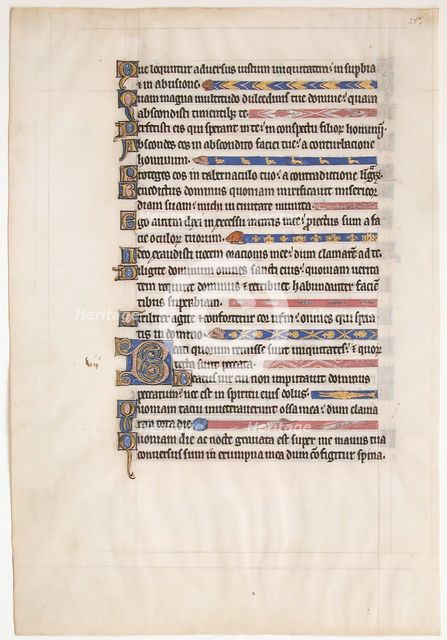 24r
Que loquitur adversus iustum iniquitatem: in supbia
& in abusione.
Quam magna multitudo dulcedinis tue domine: quam
abscondisti timentibz te.
Perfecisti eis qui sperant in te: in conspectu filior hominū
Abscondes eos in abscondito faciei tue: a conturbatione
hominum.
Proteges eos in tabernaculo tuo: a contradictione
Benedictus dominus quoniam mirificavit misericor
diam suam: michi in civitate munita.
Ego autem dixi in excessu mentis mee: proiectus sum a fa
cie oculor tuorum.
Ideo exaudisti vocem oracionis mee: dum clamarem ad te
Diligite dominum omnes sancti eius: quoniam verita
tem requiret dominus & retribuet habundanter faciē
tibus superbiam.
Viriliter agite & confortetur cor vrm: omnes qui spera
tis in domino.
Beati quorum remisse sunt iniquitates: & quor
tecta sunt peccata.
Beatus vir cui non imputavit dominus
peccatum: nec est in spiritu eius dolus.
Quoniam tacui inveteraverunt ossa mea: dum clama
rem tota die.
Quoniam die ac nocte gravata est super me manus tua
conversus sum in erumpna mea dum cōfigitur spina.
Heritage
Heritage
Heritage
Heritage